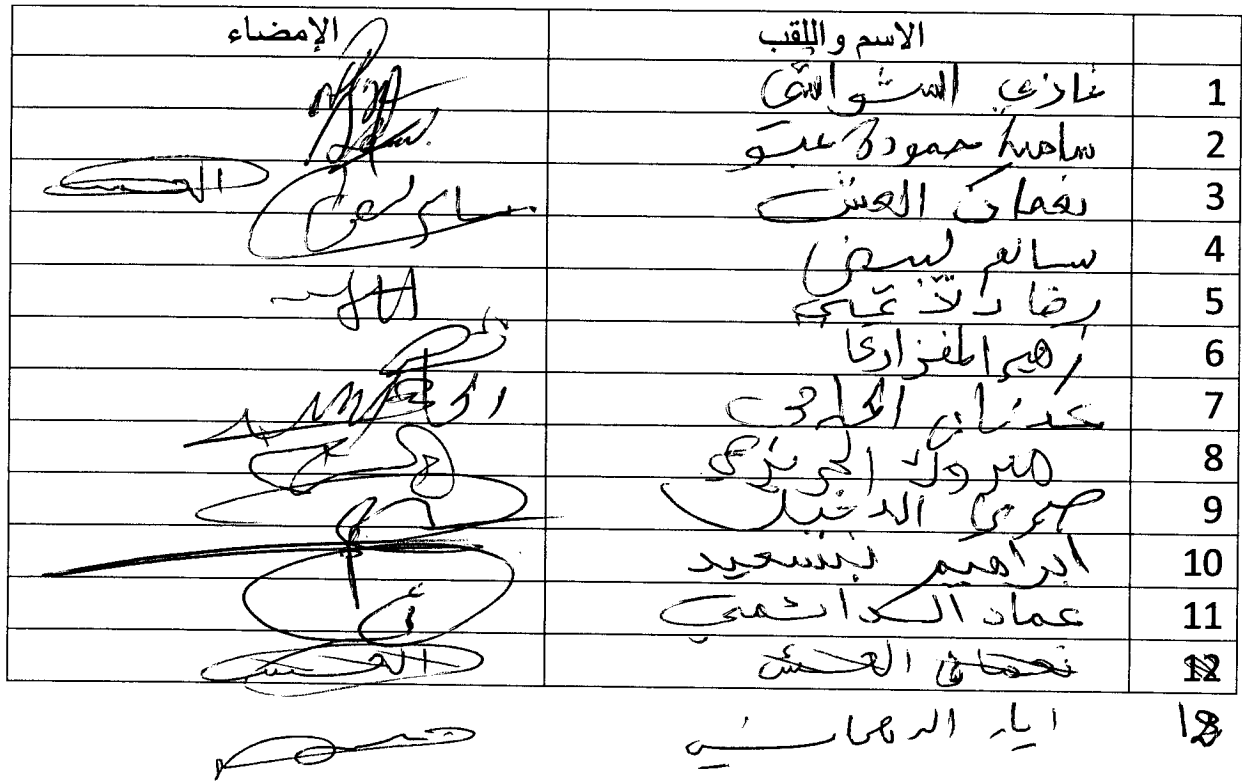 الاسم واللقب الإمضاء
1 غازي الشواشي
2 سامية حمودة عبو
3 نعمان العش العش
4 سالم لبيض سالم لبيض
5 رضا دلاعي
6 زهير المغزاوي
7 عدنان الحاجي
8 مبروك الحريزي
9 صبري الدخيل
10 ابراهيم بنسعيد
11 عماد الدائمي
12 نعمان العش العش
12 اياد الدهماني